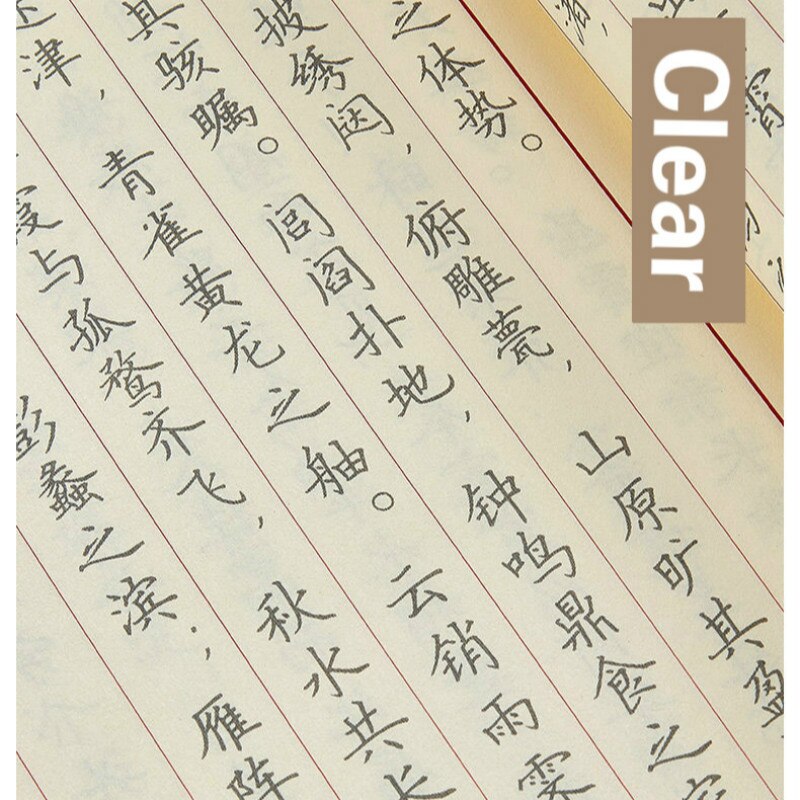 Clear
之体势。
披绣闼，俯雕甍，山原旷其盈
其骇瞩。闾阎扑地，钟鸣鼎食之
津，青雀黄龙之舳。云销雨霁
霞与孤鹜齐飞，秋水共长
彭蠡之滨；雁阵